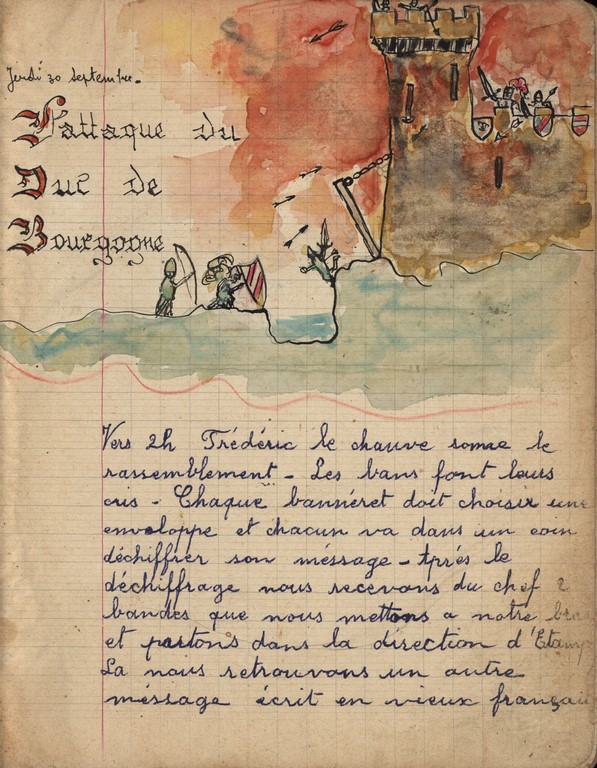 Jeudi 30 septembre.
L'attaque du
Duc de
Bourgogne
Vers 2h Frédéric le chauve sonne le
rassemblement - Les bans font leurs
cris - Chaque bannéret doit choisir une
enveloppe et chacun va dans un coin
déchiffrer son méssage - Aprés le
déchiffrage nous recevons du chef 2
bandes que nous mettons a notre bras
et partons dans la direction d'Etamp
La nous retrouvons un autre
méssage écrit en vieux français